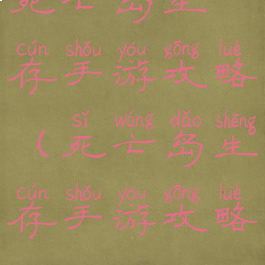 死亡岛生
cún shǒu yóu gōng lüè
存手游攻略
sǐ wáng dǎo shēng
（死亡岛生
cún shǒu yóu gōng lüè
存手游攻略